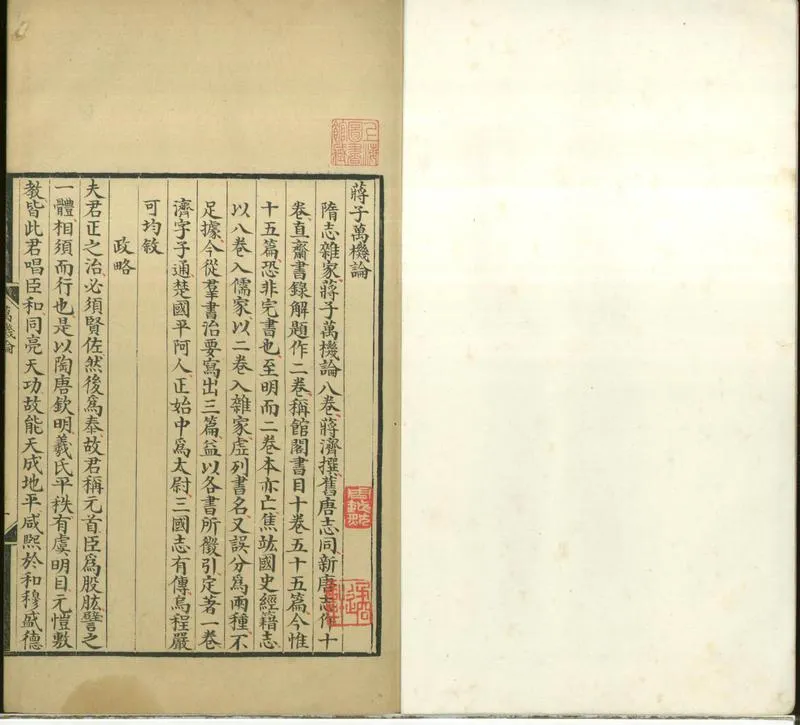 蔣子萬機論
隋志雜家蔣子萬機論八卷蔣濟撰舊唐志同新唐志作十
卷直齋書錄解題作二卷稱館閣書目十卷五十五篇今惟
十五篇恐非完書也至明而二卷本亦亡焦竑國史經籍志
以八卷入儒家以二卷入雜家虛列書名又誤分爲兩種不
足據今從羣書治要寫出三篇益以各書所徵引定著一卷
濟字子通楚國平阿人正始中爲太尉三國志有傳烏程嚴
可均敘
政略
夫君正之治必須賢佐然後爲泰故君稱元首臣爲股肱譬之
一體相須而行也是以陶唐欽明羲氏平秩有虞明目元愷敷
教皆此君唱臣和同亮天功故能天成地平咸熙於和穆盛德
萬機論
上海圖書館藏